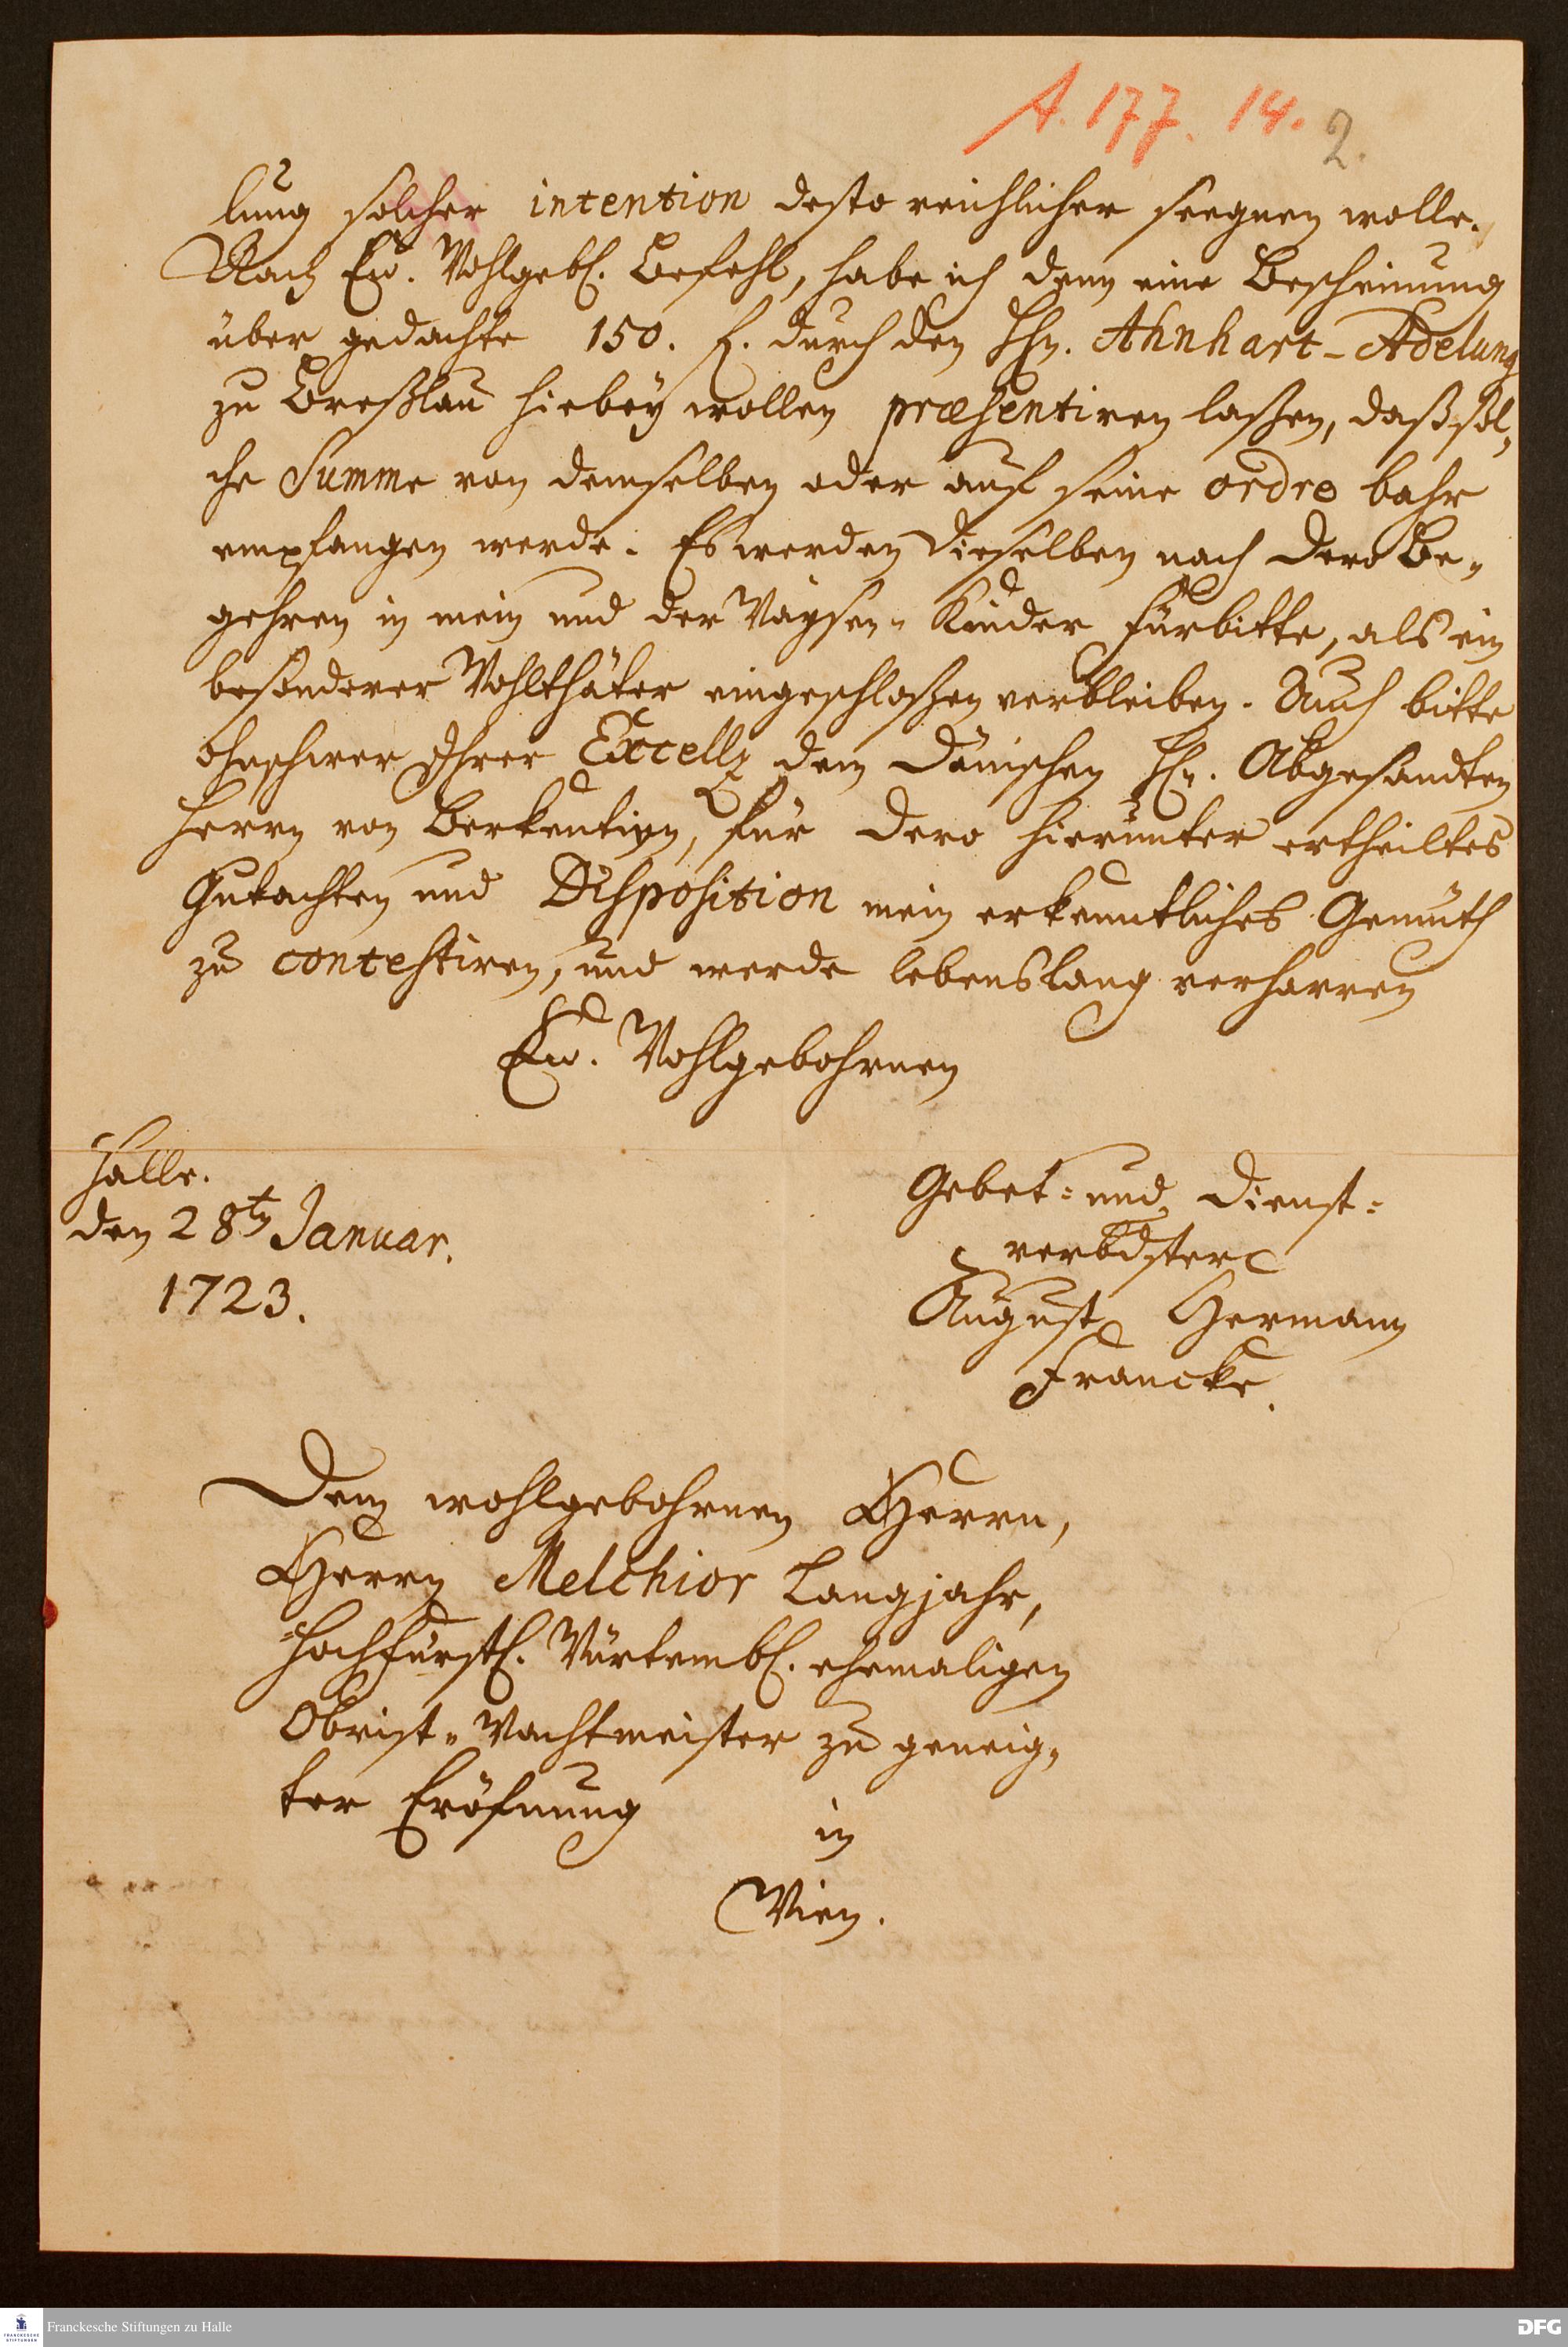 A. 177. 14. 2.
lung solcher intention desto reichlicher seegnen wolle.
Nach Ew. Wohlgebl. Befehl, habe ich denn eine Bescheinung
über gedachte 150. f. durch den Hhn. Ahnhart-Adelung
zu Breßlau hiebey wollen præsentiren laßen, daß sol„
che Summe von demselben oder auf seine ordre bahr
empfangen werde. Es werden dieselben nach dero Be„
gehren in mein und der Waysen„ Kinder Fürbitte, als ein
besonderer Wohlthäter eingeschloßen verbleiben. Auch bitte
ohnschwer Ihrer Excellz dem Dänischen Hn. Abgesandten
Herrn von Berkentien, für dero hierunter ertheiltes
Gutachten und Disposition mein erkenntliches Gemüth
zu contestiren, und werde lebenslang verharren
Ew. Wohlgebohrnen
Halle.
den 28tn Januar.
1723.
Gebet= und Dienst=
verbdster
August Hermann
Francke.
Dem wohlgebohrnen Herrn,
Herrn Melchior Langjahr,
Hochfürstl. Würtembl. ehemaligen
Obrist„ Wachtmeister zu geneig„
ter Eröfnung
in
Wien.
FRANCKESCHE STIFTUNGEN
Franckesche Stiftungen zu Halle
DFG